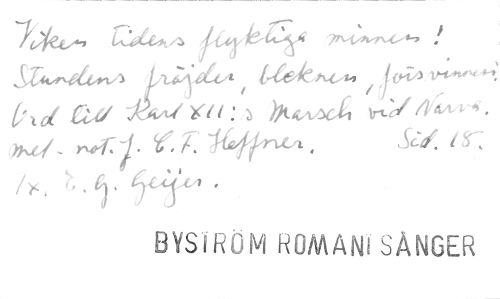 Viken tidens flyktiga minnen!
Stundens fröjder, bleknen, försvinnen!
Ord till Karl XII:s Marsch vid Narva.
mel. not. f. C. F. Heffner. Sid. 18.
1x. E. G. Geijer.
BYSTRÖM ROMANI SÅNGER